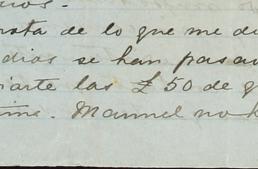 osta de lo que me di
dias se han pasad
iarte las £50 de q
tima. Manuel no h